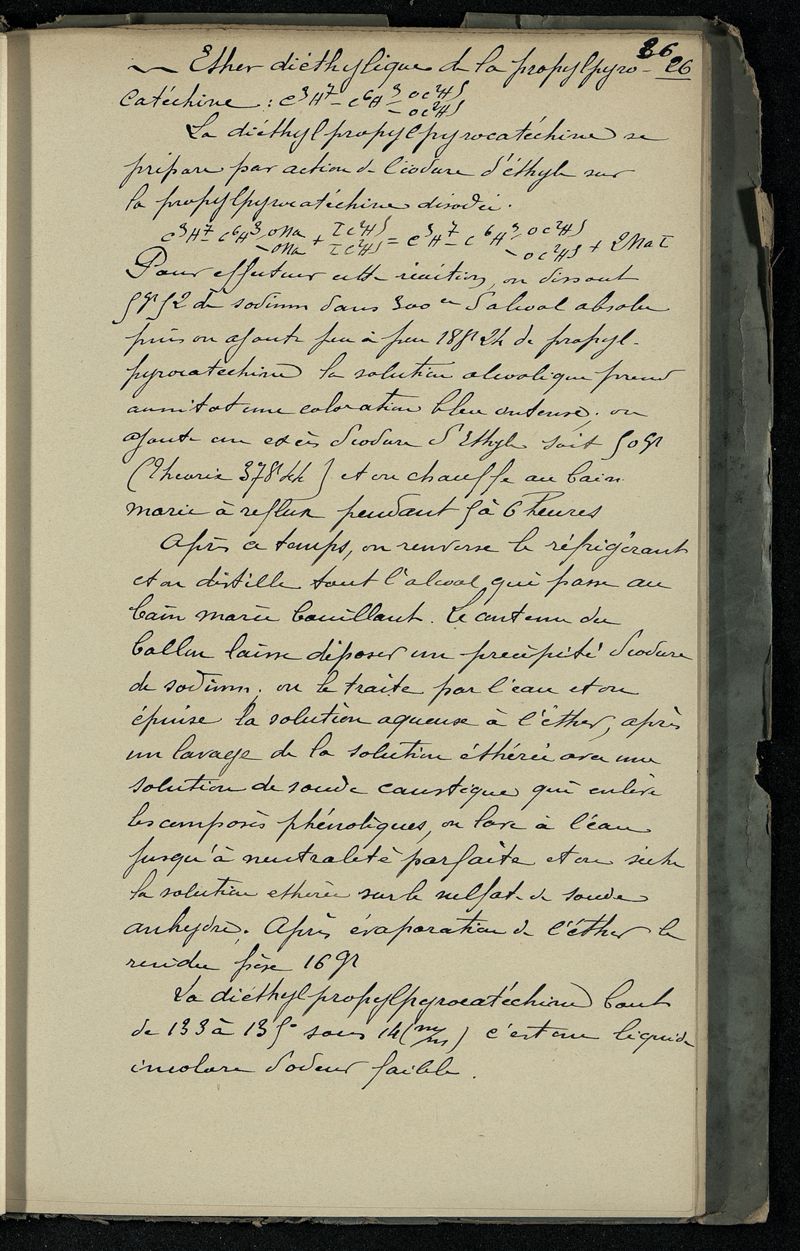 36
26
Ether diéthylique de la propylpyro-
catéchine : C³H⁷ - C⁶H³ - OC²H⁵ - OC²H⁵
La diéthylpropylpyrocatéchine se
prépare par action de l'iodure d'éthyle sur
la propylpyrocatéchine disodée.
C³H⁷ - C⁶H³ - ONa - ONa + IC²H⁵ IC²H⁵ = C³H⁷ - C⁶H³ - OC²H⁵ - OC²H⁵ + 2NaI
Pour effectuer cette réaction, on dissout
5gr52 de sodium dans 300cc d'alcool absolu
puis on ajoute peu à peu 18gr24 de propyl-
pyrocatechine la solution alcoolique prend
aussitot une coloration bleu intense; on
ajoute un excès d'iodure d'Ethyle soit 50gr
(Theorie 37gr44) et on chauffe au bain
marie à reflux pendant 5 à 6 heures
Après ce temps, on renverse le réfrigérant
et on distille tout l'alcool qui passe au
bain marie bouillant. Le contenu du
ballon laisse déposer un précipité d'iodure
de sodium; on le traite par l'eau et on
épuise la solution aqueuse à l'éther, après
un lavage de la solution éthérée avec une
solution de soude caustique qui enlève
les composés phénoliques, on lave à l'eau
jusqu'à neutralité parfaite et on sèche
la solution ethérée sur le sulfate de soude
anhydre. Après évaporation de l'éther le
residu pèse 16gr
La diéthylpropylpyrocatéchine bout
de 133 à 135° sous 14 (m/m) c'est un liquide
incolore d'odeur faible.